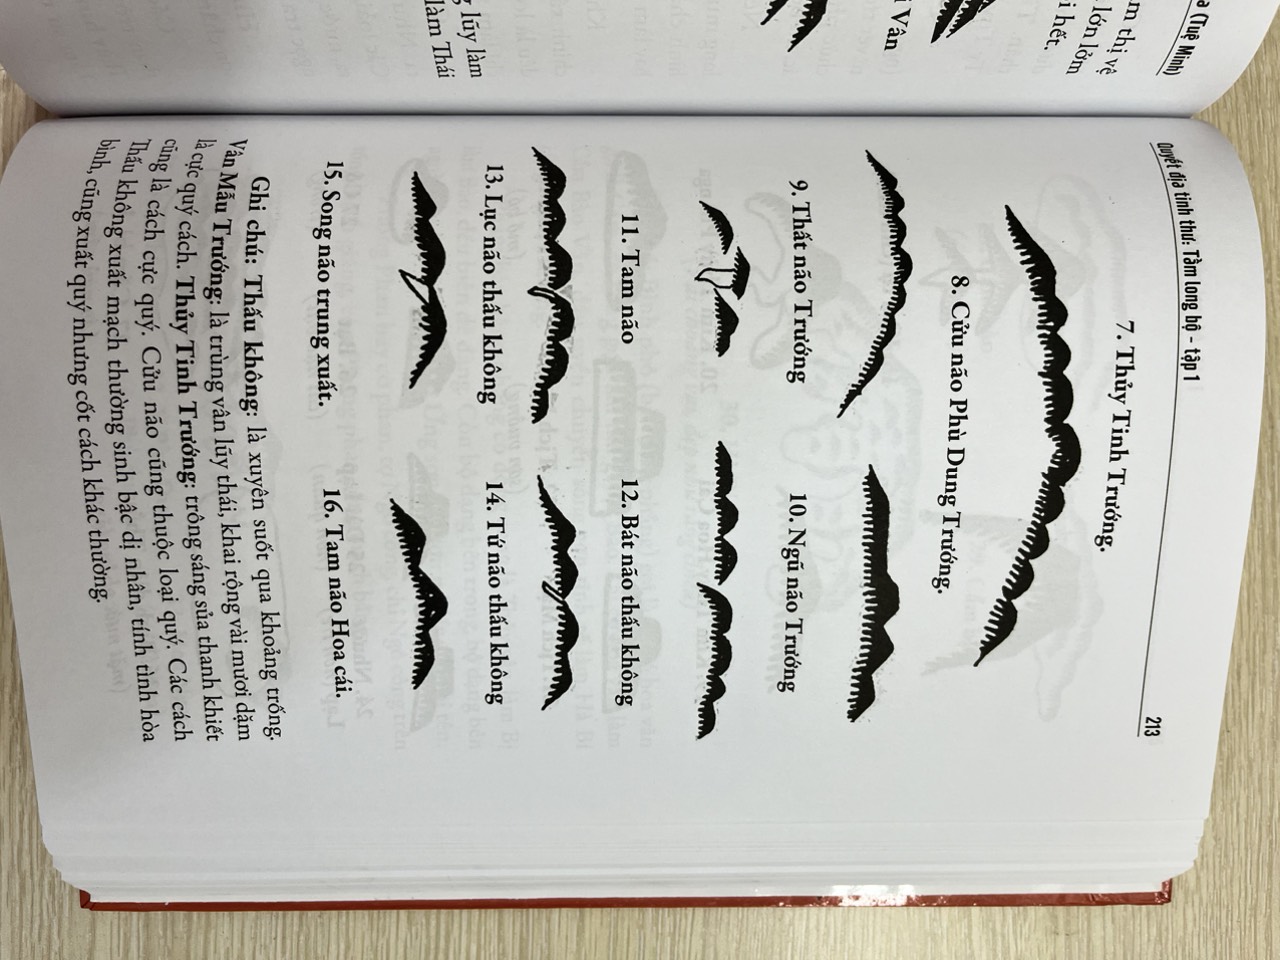 a (Tuệ Minh)
m thị vệ
lớn lởm
i hết.
i Vân
g lũy làm
làm Thái
Quyết địa tinh thư: Tầm long bộ - tập 1
213
7. Thủy Tinh Trướng.
8. Cửu não Phù Dung Trướng.
9. Thất não Trướng
10. Ngũ não Trướng
11. Tam não
12. Bát não thấu không
13. Lục não thấu không
14. Tứ não thấu không
15. Song não trung xuất.
16. Tam não Hoa cái.
Ghi chú: Thấu không: là xuyên suốt qua khoảng trống.
Vân Mẫu Trướng: là trùng vân lũy thái, khai rộng vài mươi dặm
là cực quý cách. Thủy Tinh Trướng: trông sáng sủa thanh khiết
cũng là cách cực quý. Cửu não cũng thuộc loại quý. Các cách
Thấu không xuất mạch thường sinh bậc dị nhân, tính tình hòa
bình, cũng xuất quý nhưng cốt cách khác thường.